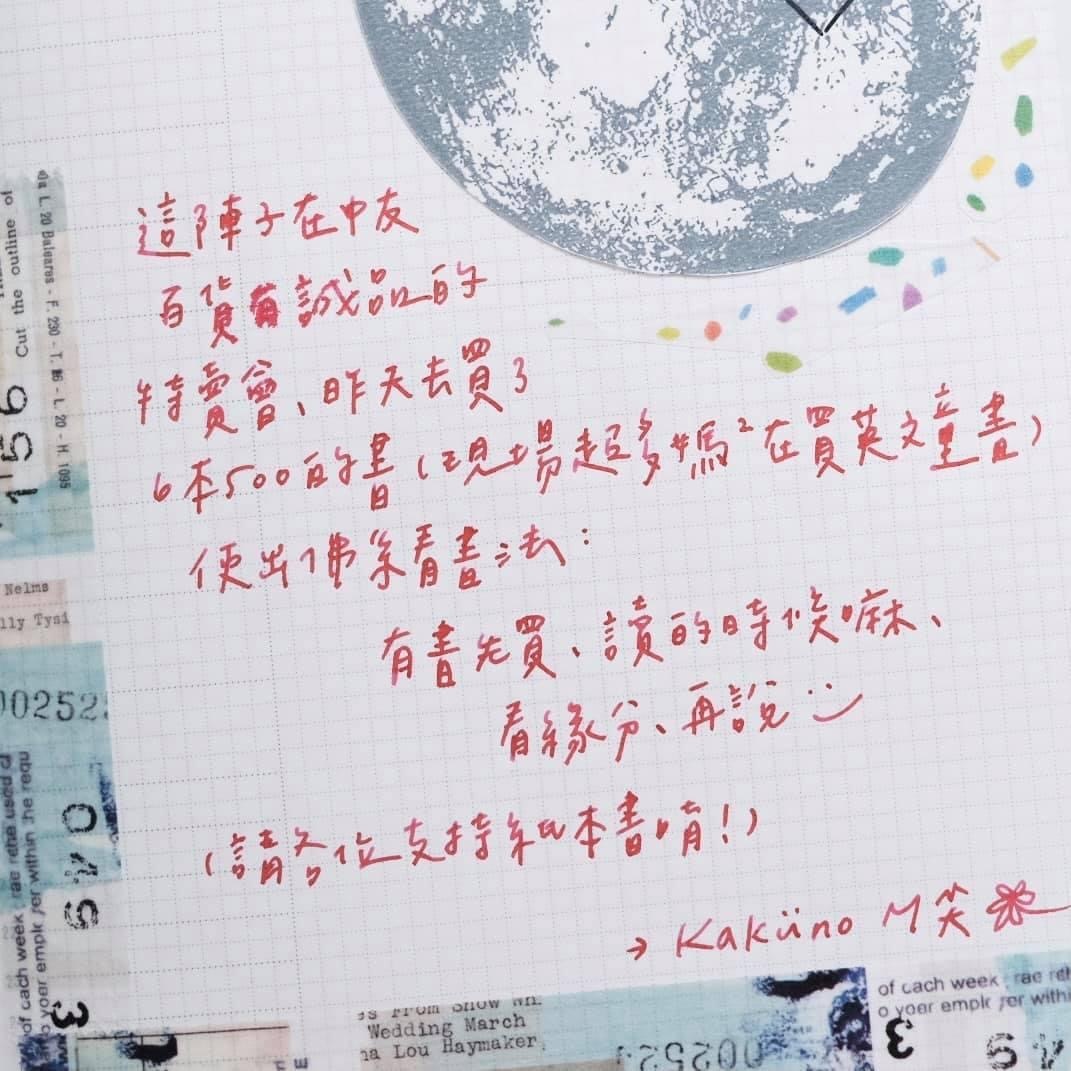 這陣子在中友
百貨有誠品的
特賣會、昨天去買了
6本500的書(現場超多媽²在買英文童書)
使出佛系看書法:
有書先買、讀的時候嘛、
看緣分、再說
(請各位支持紙本書唷!)
→ Kaküno M笑
Cut the outline of
ela L. 20 Baleares - F. 230 - T. 16 - L. 20 - H. 1095
156
Nelms
lly Tysi
00252
of cach week rae rehe used cf
o yoer emplk rer within the requ
3
640
Wedding March
na Lou Haymaker
00252
of cach week rae reh
o yoer emplk rer withi
3